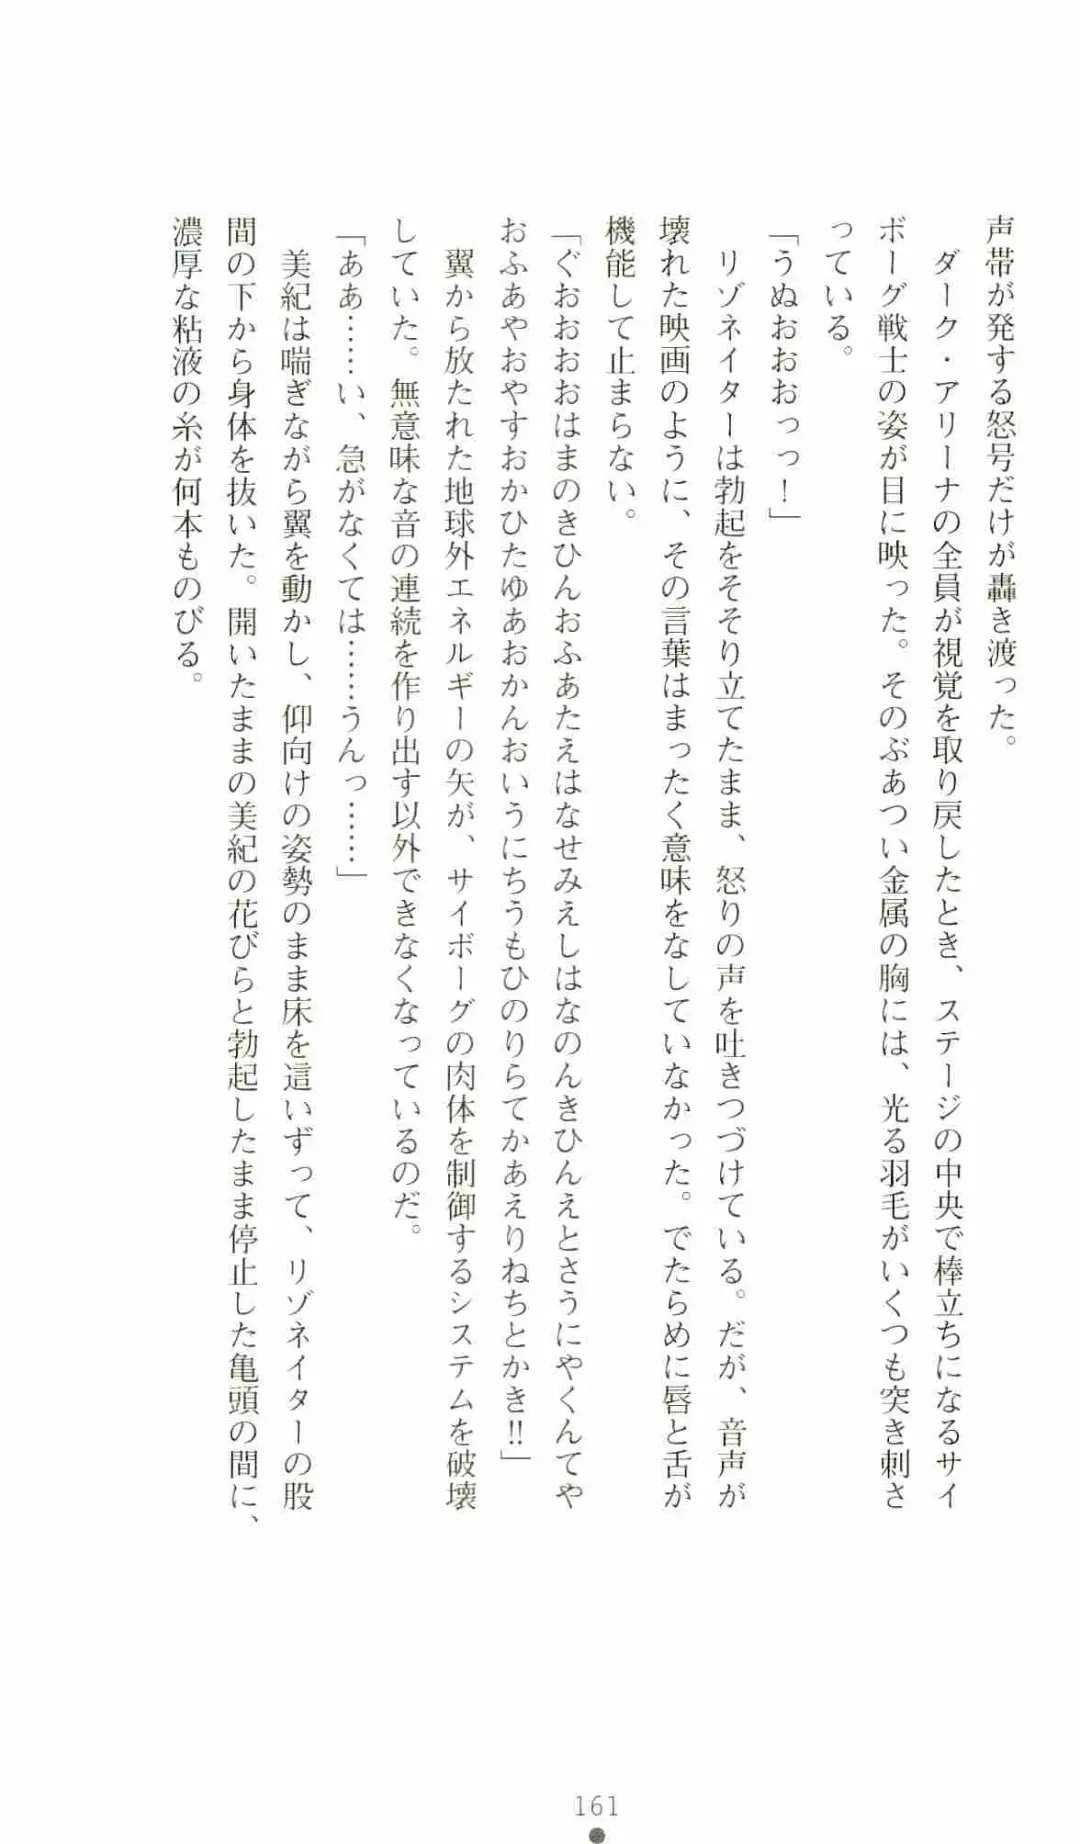 声帯が発する怒号だけが轟き渡った。
　ダーク・アリーナの全員が視覚を取り戻したとき、ステージの中央で棒立ちになるサイ
ボーグ戦士の姿が目に映った。そのぶあつい金属の胸には、光る羽毛がいくつも突き刺さ
っている。
「うぬおおおっっ！」
　リゾネイターは勃起をそそり立てたまま、怒りの声を吐きつづけている。だが、音声が
壊れた映画のように、その言葉はまったく意味をなしていなかった。でたらめに唇と舌が
機能して止まらない。
「ぐおおおおはまのきひんおふあたえはなせみえしはなのんきひんえとさうにやくんてや
おふあやおやすおかひたゆあおかんおいうにちうもひのりらてかあえりねちとかき‼」
　翼から放たれた地球外エネルギーの矢が、サイボーグの肉体を制御するシステムを破壊
していた。無意味な音の連続を作り出す以外できなくなっているのだ。
「ああ……い、急がなくては……うんっ……」
　美紀は喘ぎながら翼を動かし、仰向けの姿勢のまま床を這いずって、リゾネイターの股
間の下から身体を抜いた。開いたままの美紀の花びらと勃起したまま停止した亀頭の間に、
濃厚な粘液の糸が何本ものびる。
161